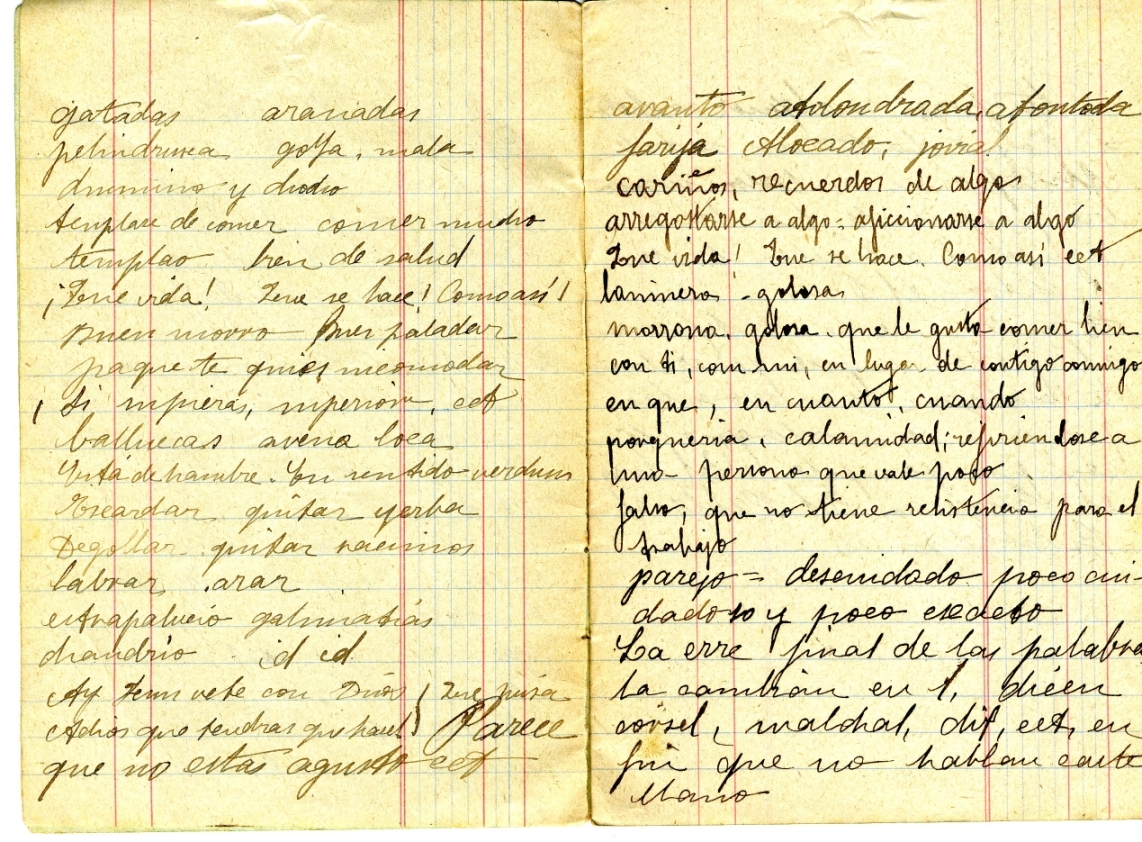 gatadas arañadas
pelindrusca golfa, mala
dummino y diodio
templase de comer comer mucho
templao bien de salud
¡Que vida! Que se hace! Como así!
Buen morro Buen paladar
pa que te quies incomodar
Si supieras, superior, ect
ballueca avena loca
de hambre. En sentido verdum
Escardar quitar yerba
Degollar quitar racimos
labrar arar
estrapalucio galimatias
chandrío id id
Ay Jesus vete con Dios } Que prisa
Adios que tendras que hacel } Parece
que no estas agusto ect
avanto atolondrada, atontada
farija Alocado, jovial
cariños, recuerdos de algo
arregostarse a algo = aficcionarse a algo
Que vida! Que se hace. Como así ect
laminera - golosa
morrona, golosa. que le gusta comer bien
con ti, con mi, en lugar de contigo conmigo
en que, en cuanto, cuando
porqueria, calamidad; refiriendose a
una persona que vale poco
falso, que no tiene resistencia para el
trabajo
parejo = descuidado poco cui-
dadoso y poco exacto
La erre final de las palabras
la cambian en l, dicen
corsel, maldral, dil, ect, en
fin que no hablan caste
llano